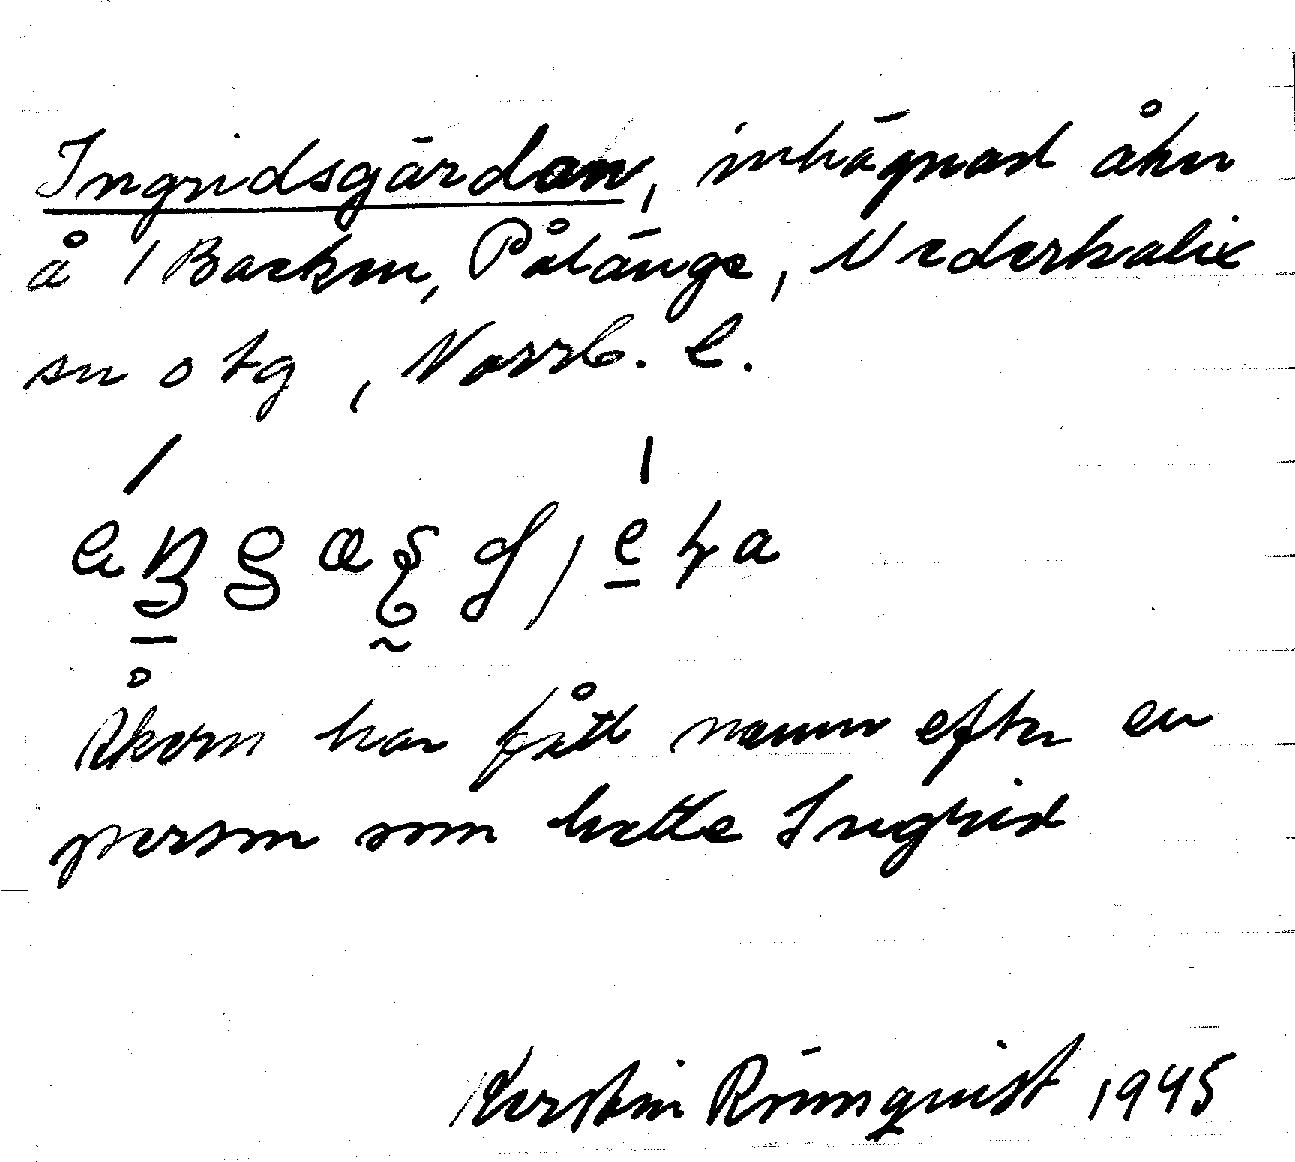 Ingridsgärdan, inhägnad åker
å Backen, Pålänge, Nederkalix
sn o tg, Norrb. l.
Åkern har fått namn efter en
person som hette Ingrid
Kerstin Rönnquist 1945